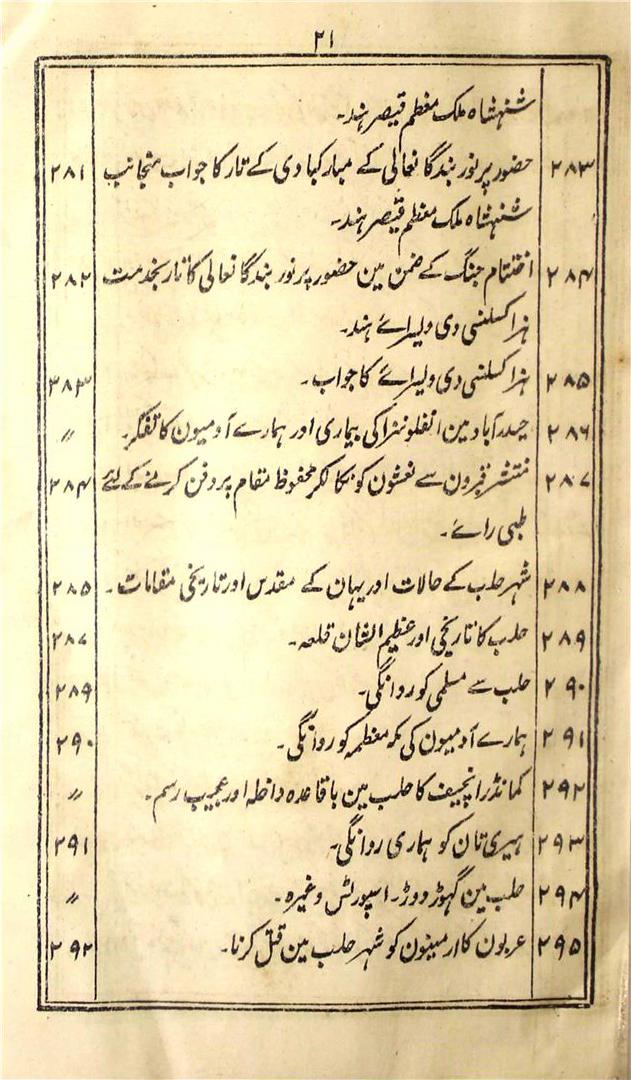 ۲۱
شہنشاہ ملک معظم قیصر ہند۔
۲۸۳ حضور پر نور بندگانعالی کے مبارکبادی کے تار کا جواب منجانب ۲۸۱
شہنشاہ ملک معظم قیصر ہند۔
۲۸۴ اختتام جنگ کے ضمن مین حضور پر نور بندگانعالی کا تار بخدمت ۲۸۲
ہزاکسلنسی دی ویسراے ہند۔
۲۸۵ ہزاکسلنسی دی ویسراے کا جواب۔ ۳۸۳
۲۸۶ حیدرآباد مین انفلوئنزا کی بیماری اور ہمارے آدمیون کا تفکر۔ 〃
۲۸۷ منتشر قبرون سے نعشون کو نکالکر محفوظ مقام پر دفن کرنے کے لئے ۲۸۴
طبی راے۔
۲۸۸ شہر حلب کے حالات اور یہان کے مقدس اور تاریخی مقامات۔ ۲۸۵
۲۸۹ حلب کا تاریخی اور عظیم الشان قلعہ۔ ۲۸۷
۲۹۰ حلب سے مسلمی کو روانگی۔ ۲۸۹
۲۹۱ ہمارے آدمیون کی مکہ معظمہ کو روانگی۔ ۲۹۰
۲۹۲ کمانڈر انچیف کا حلب مین باقاعدہ داخلہ اور عجیب رسم۔ 〃
۲۹۳ ہیری تان کو ہماری روانگی۔ ۲۹۱
۲۹۴ حلب مین گہوڑ دوڑ۔ اسپورٹس وغیرہ۔ 〃
۲۹۵ عربون کا ارمینون کو شہر حلب مین قتل کرنا۔ ۲۹۲